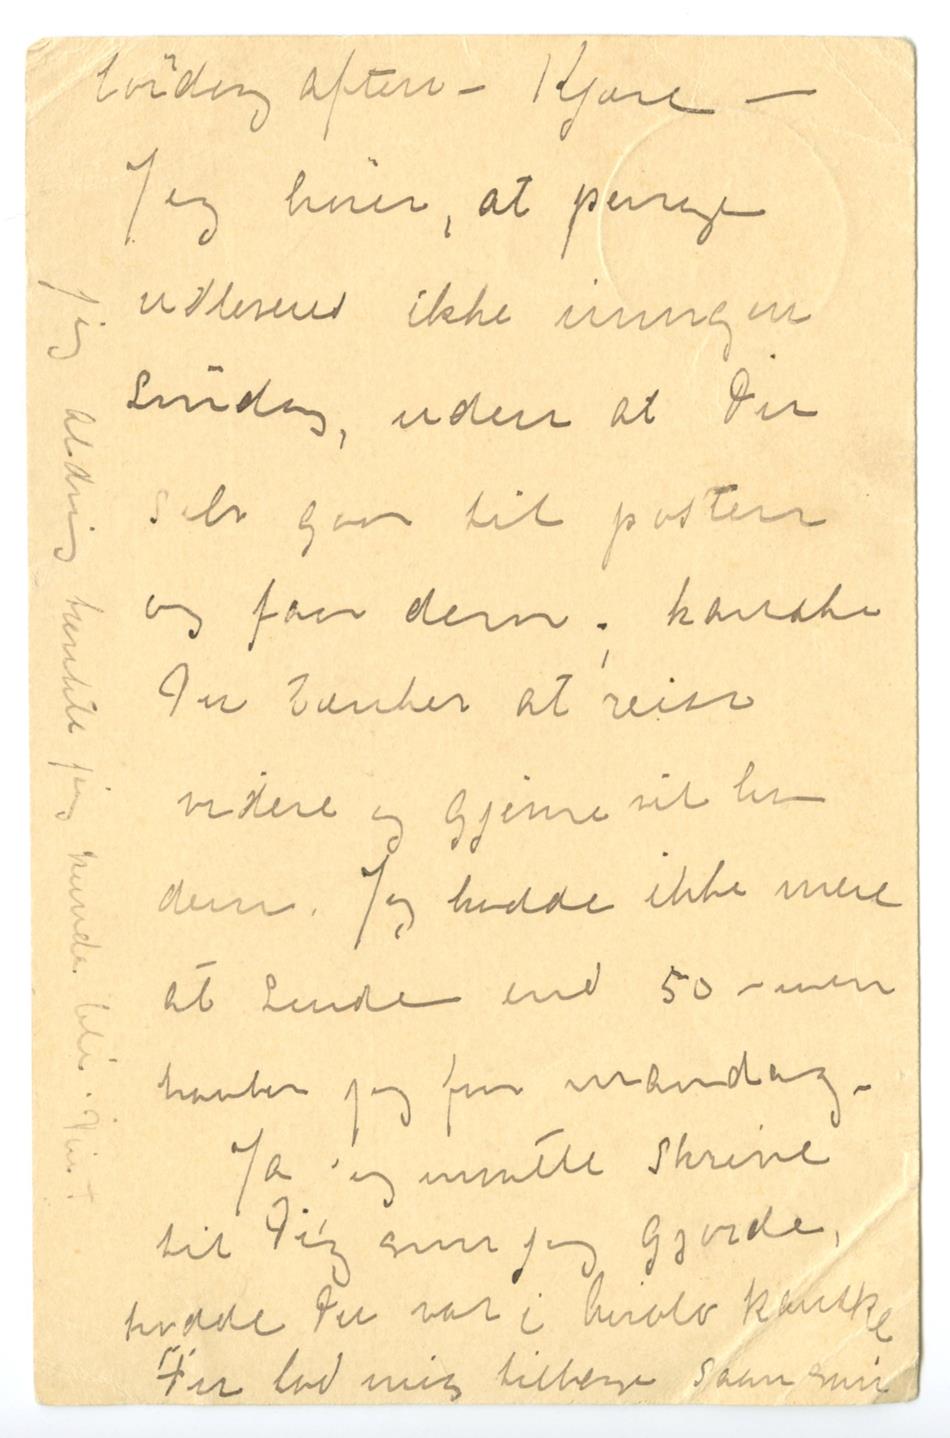 Lördag aften – Kjære –
Jeg hörer, at penge
udleveres ikke imorgen
Söndag, uden at Du
selv gaar til posten
og faar dem; kanske
Du tænker at reise
videre og gjerne vil ha
dem. Jeg hadde ikke mere
at sende end 50 – men
haaber jeg faar mandag.
Ja jeg maatte skrive
til Dig som jeg gjorde,
hadde Du vat i kanske
Du lod mig tilbage saan som
jeg aldrig tænkte jeg kunde bli. Din